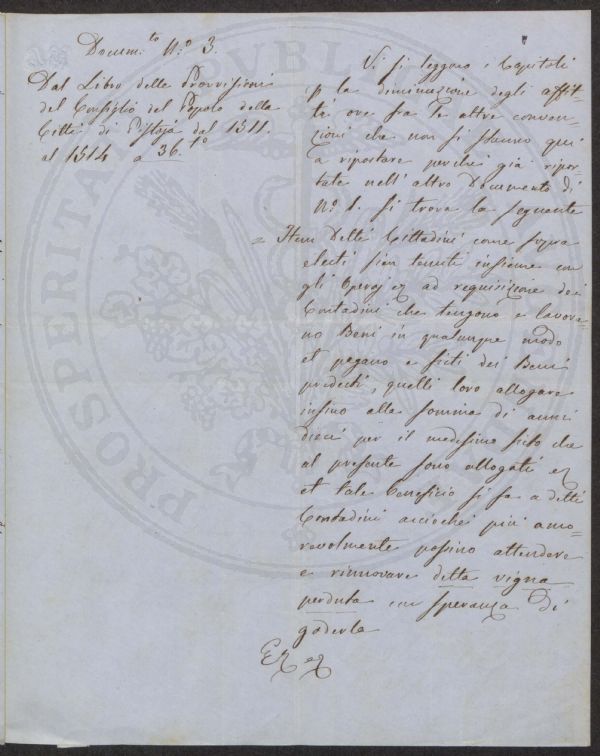 Docum.to N.o 3.
Dal Libro delle Provvisioni
del Consiglio del Popolo della
Città di Pistoja dal 1511.
al 1514 a 36.to
Vi si leggono i Capitoli
p la diminuzione degli affit=
ti ove fra le altre conven=
zioni che non si stanno qui
a riportare perchè già ripor=
tate nell' altro Documento di
N.o 1. si trova la seguente
= Item Detti Cittadini come sopra
electi sian tenuti insieme con
gli Operaj ez ad requisizione dei
Contadini che tengono e lavora=
no Beni in qualunque modo
et pagano e fitti dei Beni
predecti, quelli loro allogare
insino alla somma di anni
dieci per il medesimo fito che
al presente sono allogati ez
et tale beneficio si fa a detti
Contadini acciochè più amo=
revolmente possino attendere
e rinnovare detta vigna
perduta con speranza di
goderla
Ez ez
PROSPERITAS PUBLI